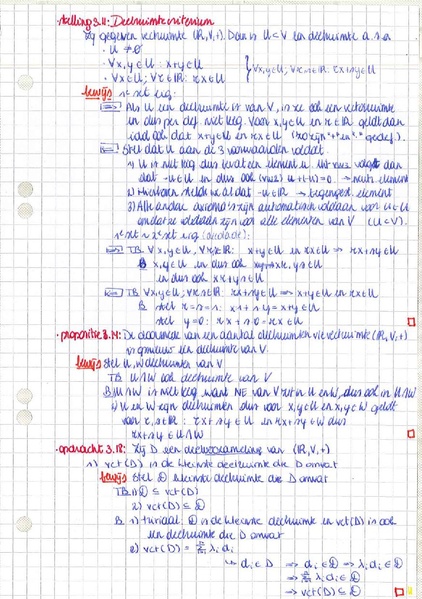 stelling 3.11: Deelruimtecriterium
Zij gegeven vectorruimte (ℝ,V,+). Dan is U ⊂ V een deelruimte a.s.a
• U ≠ ∅
• ∀x,y ∈ U: x+y ∈ U
• ∀x ∈ U; ∀r ∈ ℝ: rx ∈ U
} ∀x,y ∈ U; ∀r,s ∈ ℝ: rx+sy ∈ U
bewijs 1e set eig.
⟹ Als U een deelruimte is van V, is ze ook een vectorruimte
en dus per def niet leeg. Voor x,y ∈ U en r ∈ ℝ geldt dan
ook dat x+y ∈ U en rx ∈ U
⟸ Stel dat U aan de 3 voorwaarden voldoet
1) U is niet leeg dus bevat een element u. Uit vw3 volgt dan
dat -u ∈ U en dus ook (vw2) u+(-u)=0 → neutr. element
2) Hierboven stelden we al dat -u ∈ U → tegengest. element
3) Alle andere axioma's zijn automatisch voldaan voor U
omdat ze voldaan zijn voor alle elementen van V (U ⊂ V).
1e set ~ 2e set eig
⟹ TB ∀x,y ∈ U, ∀r,s ∈ ℝ: x+y ∈ U en rx ∈ U ⟹ rx+sy ∈ U
B x,y ∈ U en dus ook rx, sy ∈ U
en dus ook rx+sy ∈ U
⟸ TB ∀x,y ∈ U; ∀r,s ∈ ℝ: rx+sy ∈ U ⟹ x+y ∈ U en rx ∈ U
B stel r=s=1: x+y ∈ U
stel y=0: rx+s0=rx ∈ U
propositie 3.14: De doorsnede van een aantal deelruimten v/e vectorruimte (ℝ,V,+)
is opnieuw een deelruimte van V.
bewijs stel U,W deelruimten van V
TB U∩W ook deelruimte van V
B) U∩W is niet leeg want NE van V zit in U en W, dus ook in U∩W
1) U en W zijn deelruimten dus voor x,y ∈ U en x,y ∈ W geldt
voor r,s ∈ ℝ: rx+sy ∈ U en rx+sy ∈ W dus
rx+sy ∈ U∩W
opdracht 3.18: Zij D een deelverzameling van (ℝ,V,+)
1) vct(D) is de kleinste deelruimte die D omvat
bewijs Stel 𝔇 kleinste deelruimte die D omvat
TB 1) 𝔇 ⊆ vct(D)
2) vct(D) ⊆ 𝔇
B 1) triviaal: 𝔇 is de kleinste deelruimte en vct(D) is ook
een deelruimte die D omvat
2) vct(D) = Σ λi di
↳ di ∈ D ⟹ di ∈ 𝔇 ⟹ λi di ∈ 𝔇
⟹ Σ λi di ∈ 𝔇
⟹ vct(D) ⊆ 𝔇